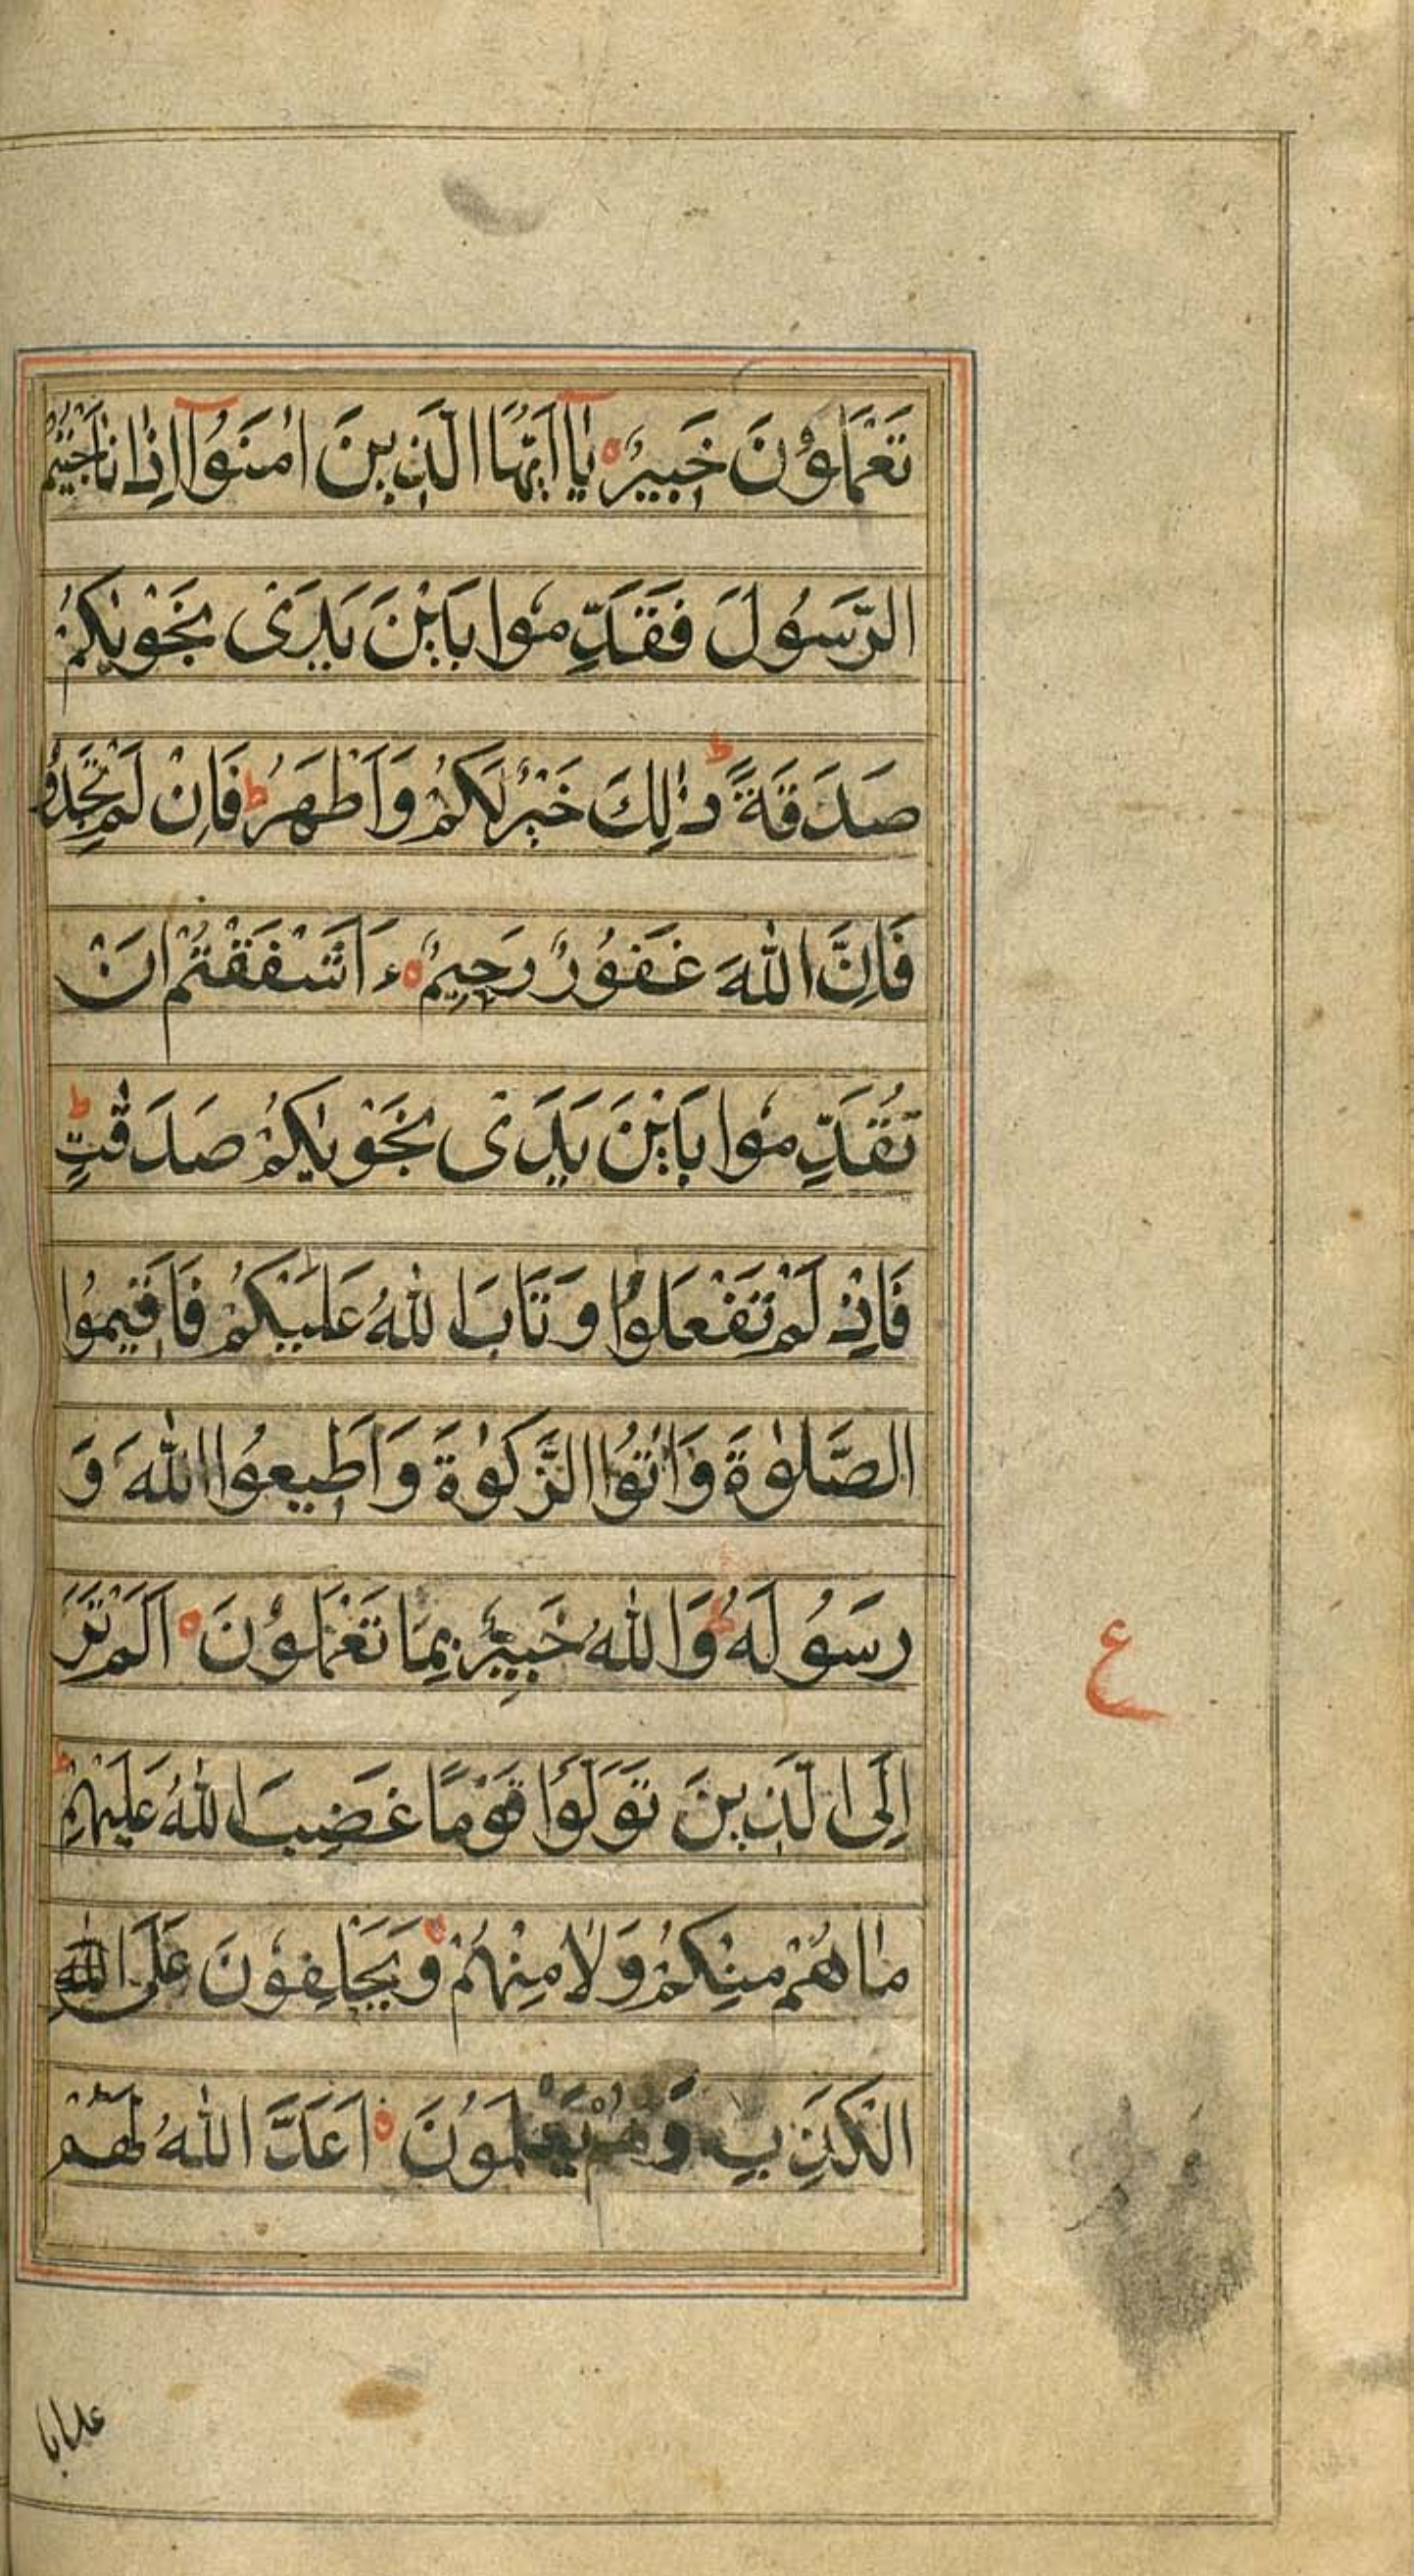 تَعْمَلُوْنَ خَبِيْرٌ يٰٓاَيُّهَا الَّذِيْنَ اٰمَنُوْٓا اِذَا نَاجَيْتُمُ
الرَّسُوْلَ فَقَدِّمُوْا بَيْنَ يَدَىْ نَجْوٰىكُمْ
صَدَقَةً ط ذٰلِكَ خَيْرٌ لَكُمْ وَاَطْهَرُ ط فَاِنْ لَمْ تَجِدُوْا
فَاِنَّ اللّٰهَ غَفُوْرٌ رَحِيْمٌ ءَاَشْفَقْتُمْ اَنْ
تُقَدِّمُوْا بَيْنَ يَدَىْ نَجْوٰىكُمْ صَدَقٰتٍ ط
فَاِذْ لَمْ تَفْعَلُوْا وَتَابَ اللّٰهُ عَلَيْكُمْ فَاَقِيْمُوا
الصَّلٰوةَ وَاٰتُوا الزَّكٰوةَ وَاَطِيْعُوا اللّٰهَ وَ
رَسُوْلَهُ ط وَاللّٰهُ خَبِيْرٌ بِمَا تَعْمَلُوْنَ اَلَمْ تَرَ
ع
اِلَى الَّذِيْنَ تَوَلَّوْا قَوْمًا غَضِبَ اللّٰهُ عَلَيْهِمْ ط
مَا هُمْ مِنْكُمْ وَلَا مِنْهُمْ وَيَحْلِفُوْنَ عَلَى اللّٰهِ
الْكَذِبِ وَهُمْ يَعْلَمُوْنَ اَعَدَّ اللّٰهُ لَهُمْ
عذابا